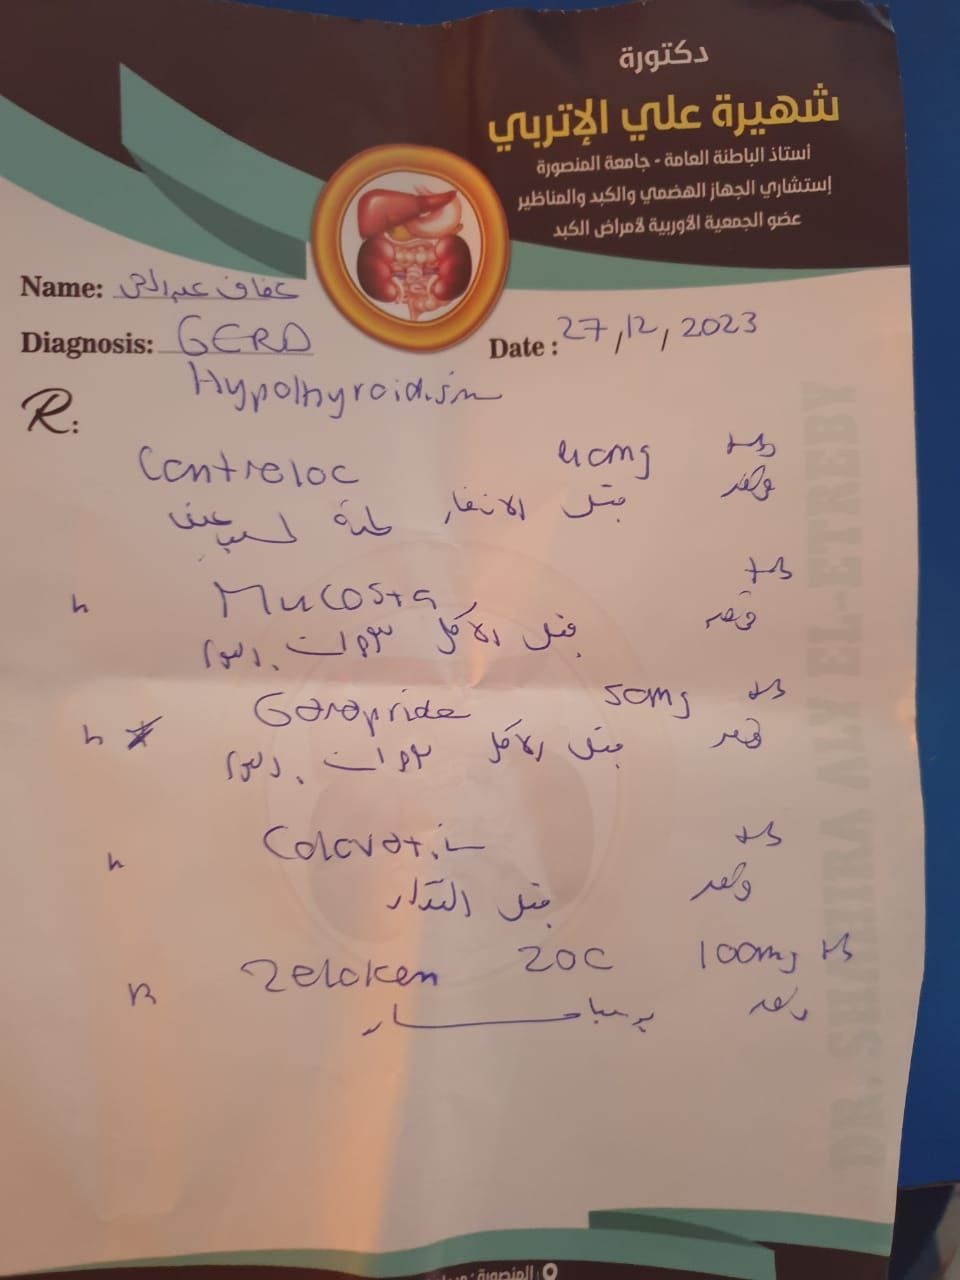 دكتورة
شهيرة علي الإتربي
أستاذ الباطنة العامة - جامعة المنصورة
إستشاري الجهاز الهضمي والكبد والمناظير
عضو الجمعية الأوربية لأمراض الكبد
Name: عفاف
Diagnosis: GERD
Date : 27, 12, 2023
Hypothyroidism
R:
Contreloc 40mg
قبل الافطار لمدة
Mucosta
قرص قبل الاكل ٣ مرات يوميا
Garapride 50mg
قرص قبل الاكل ٣ مرات يوميا
Colovatil
قبل الغداء
Zeloken ZOC 100mg
صباحا
DR. SHAHIRA ALY EL-ETREBY
المنصورة